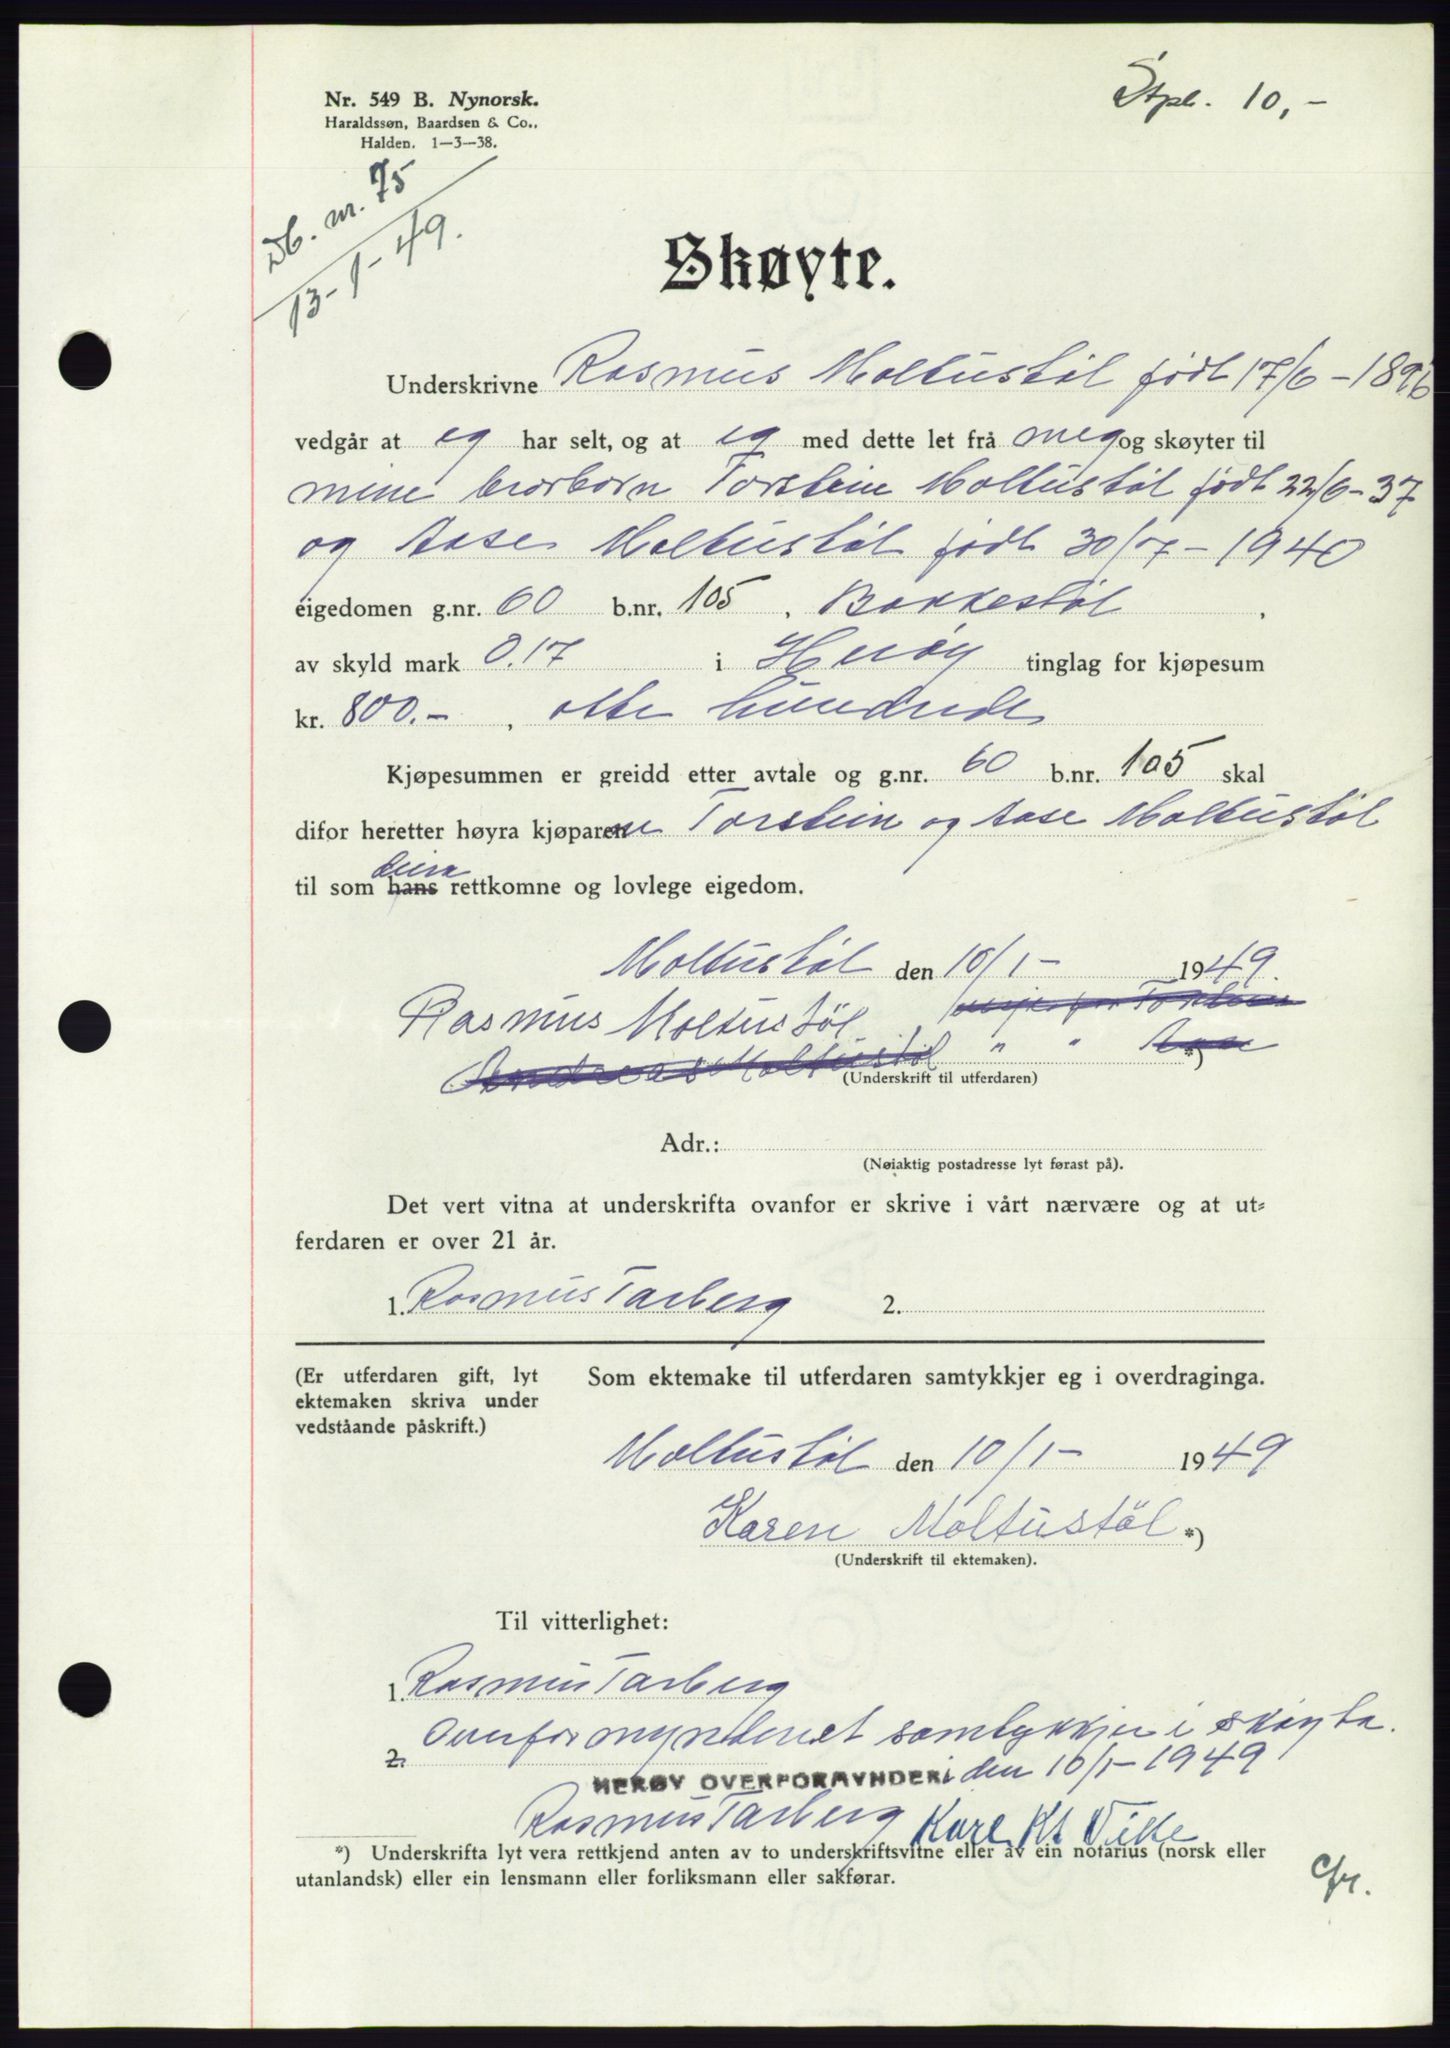 Nr. 549 B. Nynorsk.
Haraldssøn, Baardsen & Co.,
Halden. 1—3—38.
Stpl. 10,-
Db. nr. 75
13-1-49.
Skøyte.
Underskrivne Rasmus Moltustøl født 17/6-1896
vedgår at eg har selt, og at eg med dette let frå meg og skøyter til
mine brorborn Torstein Moltustøl født 22/6-37
og Aase Moltustøl født 30/7-1940
eigedomen g.nr. 60 b.nr. 105, Bakkestøl,
av skyld mark 0.17 i Herøy tinglag for kjøpesum
kr. 800.-, otte hundrede
Kjøpesummen er greidd etter avtale og g.nr. 60 b.nr. 105 skal
difor heretter høyra kjøparene Torstein og Aase Moltustøl
deira
til som hans rettkomne og lovlege eigedom.
Moltustøl den 10/1- 1949.
Rasmus Moltustøl verje for Torstein
Andreas Moltustøl " " Aase *)
(Underskrift til utferdaren)
Adr.:
(Nøiaktig postadresse lyt førast på).
Det vert vitna at underskrifta ovanfor er skrive i vårt nærvære og at ut-
ferdaren er over 21 år.
1. Rasmus Tarberg 2.
(Er utferdaren gift, lyt
ektemaken skriva under
vedståande påskrift.)
Som ektemake til utferdaren samtykkjer eg i overdraginga.
Moltustøl den 10/1- 1949
Karen Moltustøl *)
(Underskrift til ektemaken).
Til vitterlighet:
1. Rasmus Tarberg
2. Overformynderiet samtykkjer i skøyta.
HERØY OVERFORMYNDERI den 10/1-1949
Rasmus Tarberg Kare Kl Vike
*) Underskrifta lyt vera rettkjend anten av to underskriftsvitne eller av ein notarius (norsk eller
utanlandsk) eller ein lensmann eller forliksmann eller sakførar.